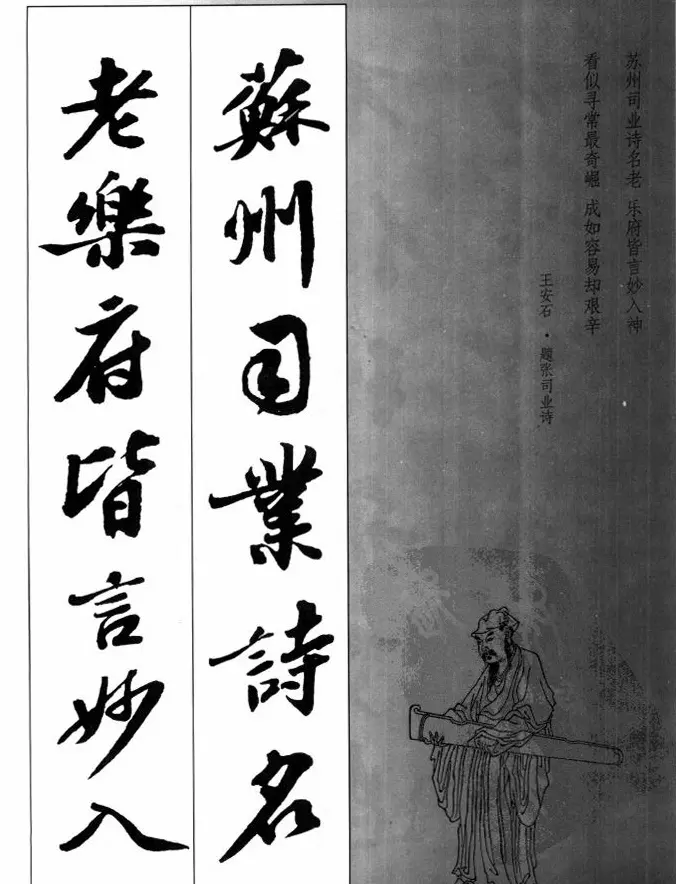 苏州司业诗名老 乐府皆言妙入神
看似寻常最奇崛 成如容易却艰辛
王安石·题张司业诗
蘇州司業詩名
老樂府皆言妙入